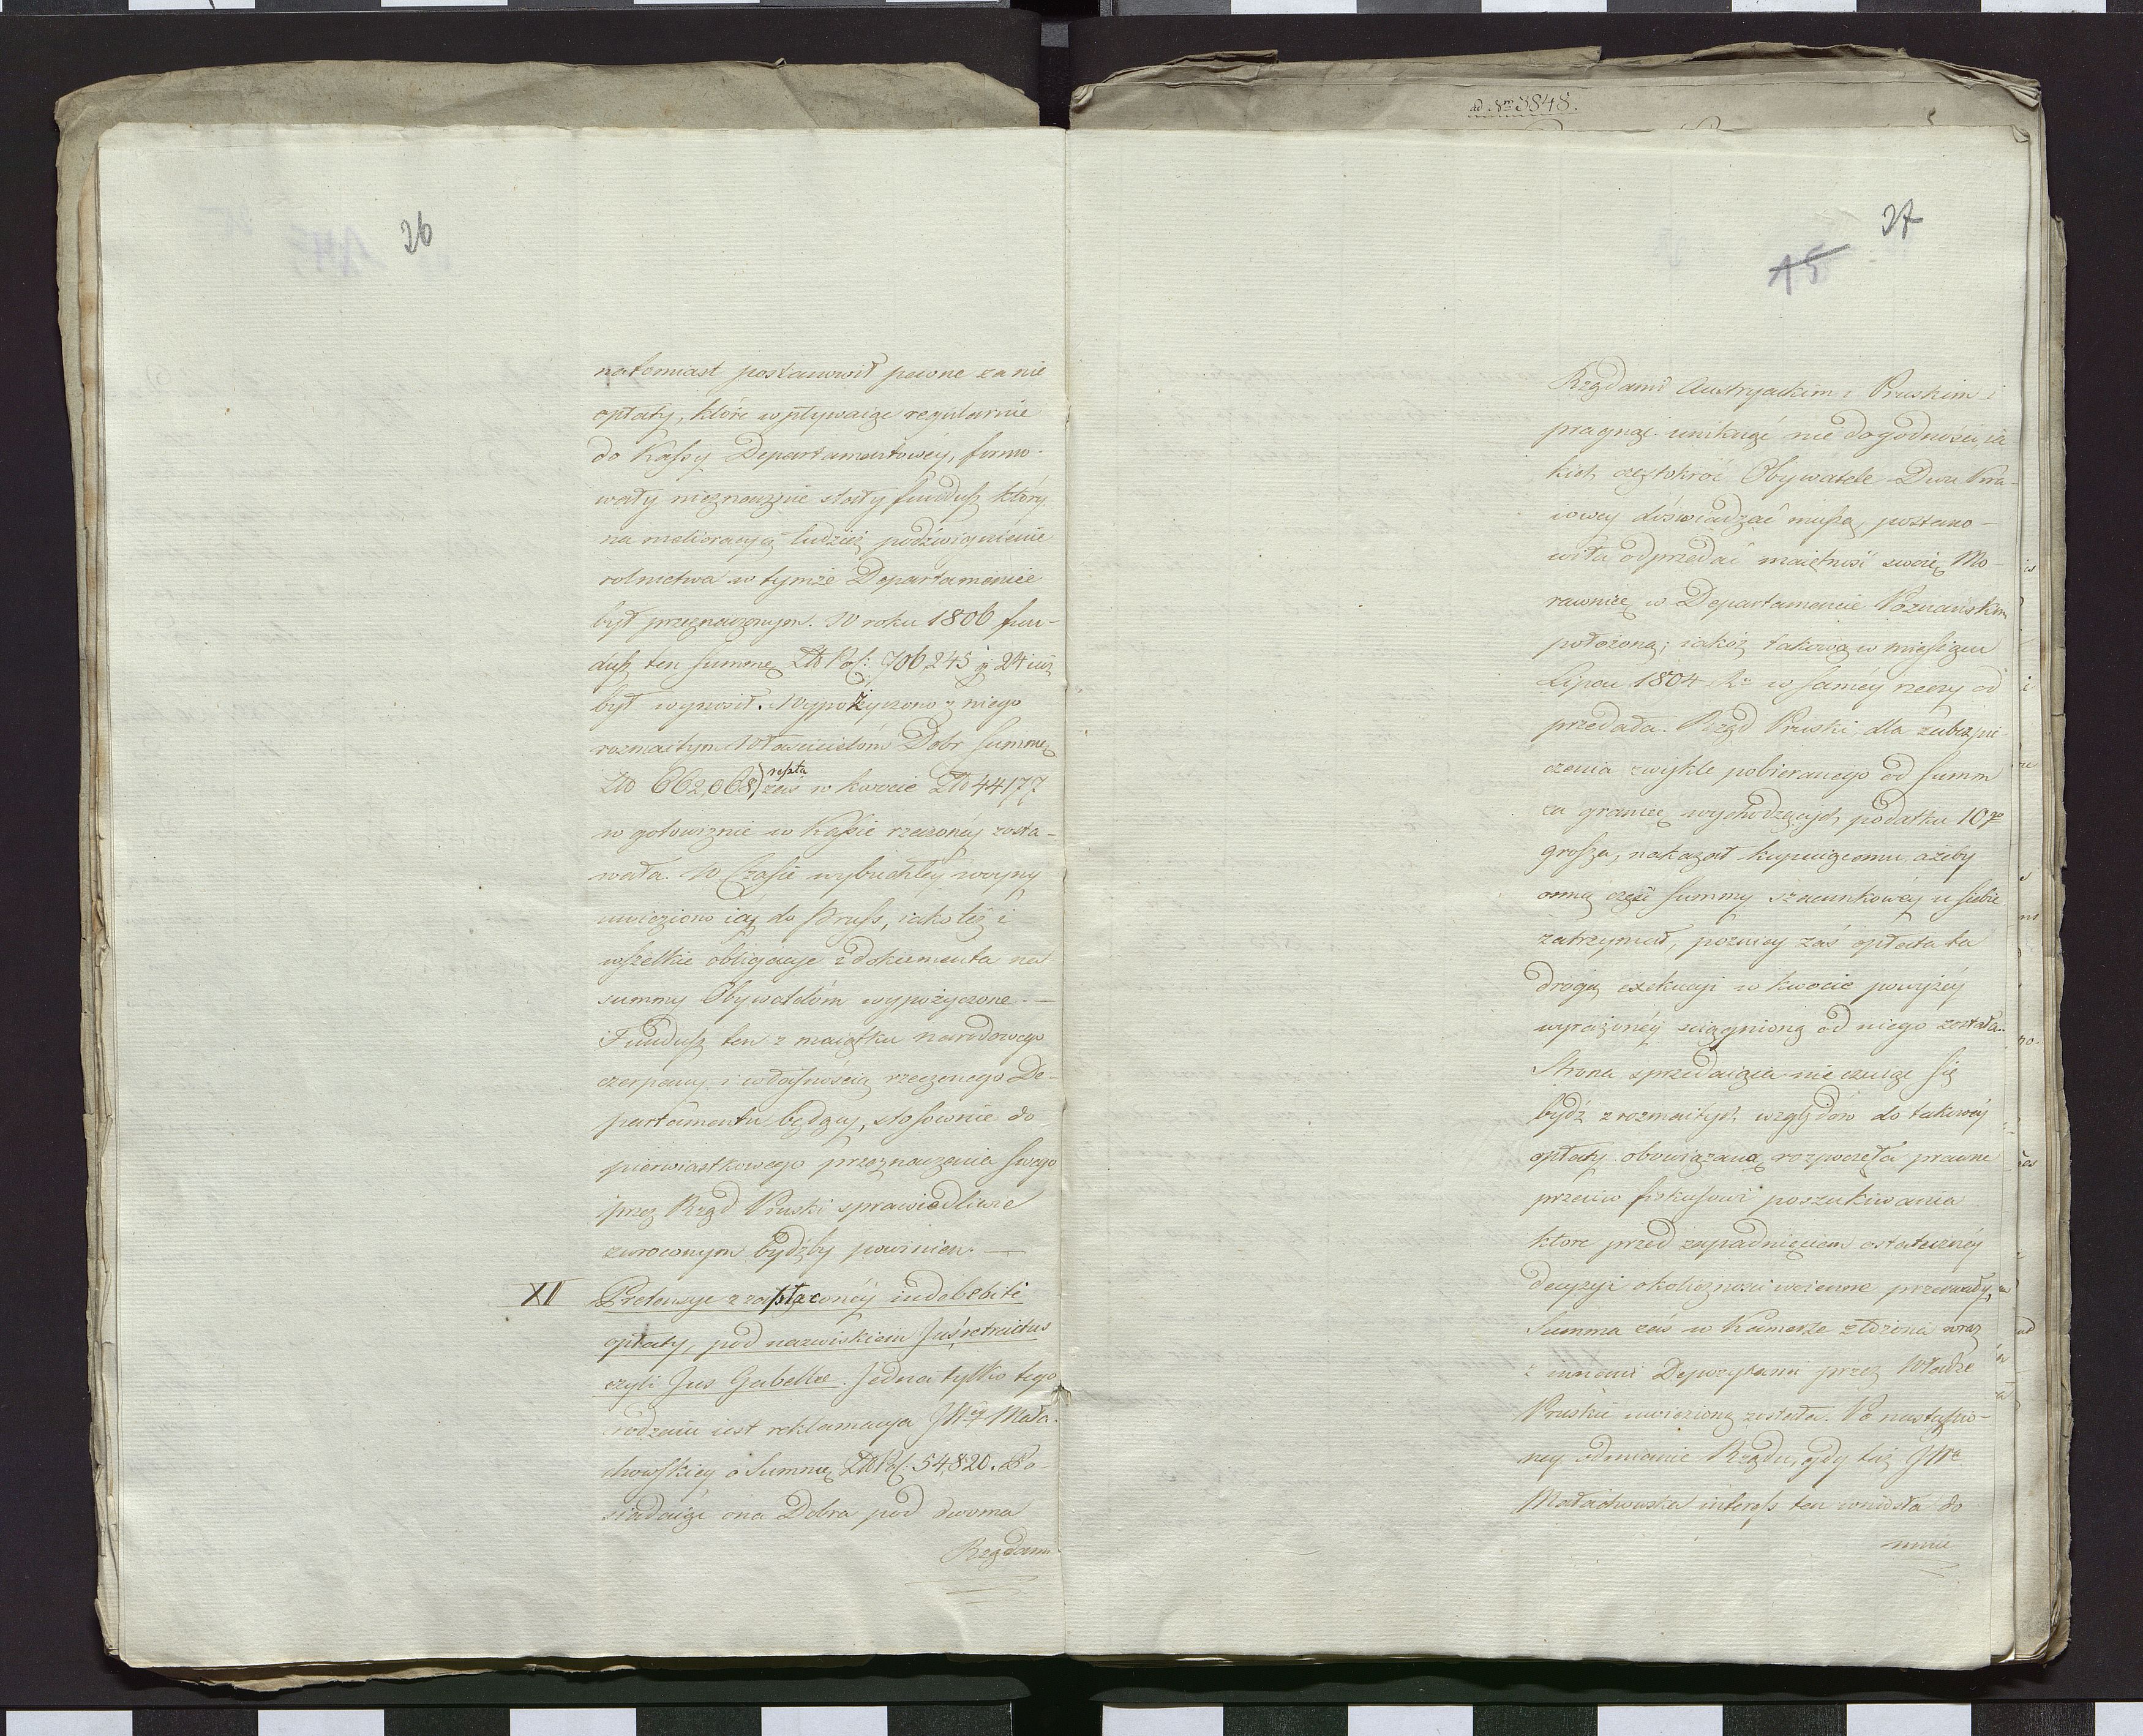 ad Nrm 3848.
26
natomiast postanowił pewne za nie
opłaty, które wpływaiąc regularnie
do Kassy Departamentowey, formo-
wały nieznacznie stały fundusz, który
na melioracyą ludzież podźwignienie
rolnictwa w tymże Departamencie
był przeznaczonym. W roku 1806 fun-
dusz ten summę Złt Pol: 706,245 g 24 iuż
był wynosił. Wypożyczono z niego
rozmaitym Włascicielom Dobr summę
Złt 662,068, reszta zaś w kwocie Złt 44177
w gotowiznie w Kassie rzeczoney zosta-
wała. W Czasie wybuchłey woyny
uwieziono ią do Pruss, iako też i
wszelkie obligacye i dokumenta na
summy Obywatelom wypożyczone. —
Fundusz ten z maiątku narodowego
czerpany i własnoscią rzeczonego De-
partamentu będący, stosownie do
pierwiastkowego przeznaczenia swego
przez Rząd Pruski sprawiedliwie
zwroconym bydźby powinien. —
XII Pretensye z zapłaconéy indebite
opłaty, pod nazwiskiem Jus retractus
czyli Jus Gabellae. Jedna tylko tego
rodzaiu iest reklamacya JWey Mała-
chowskiey o Summę Złt Pol: 54,820. Po-
siadaiąc ona Dobra pod dwoma
Rządami
27
15
Rządami Austryackim i Pruskim i
pragnąc uniknąć nie dogodności, ia-
kich częstokroć Obywatele Dwu Kra-
iowey doświadzać muszą, postano-
wiła odprzedać maiętność swoię Mo-
rawnicę w Departamencie Poznańskim
położoną; iakoż takową w miesiącu
Lipcu 1804 R. w saméy rzeczy od
przedała. Rząd Pruski, dla zabezpie-
czenia zwykle pobieranego od summ
za granicę wychodzących podatku 10go
grosza, nakazał kupuiącemu ażeby
osmą część summy szacunkowéy u siebie
zatrzymał, pozniey zaś opłata ta
drogą exekucyi w kwocie powyżéy
wyrażonéy sciągnioną od niego została.
Strona sprzedaiąca nie czuiąc się
bydź z rozmaitych względów do takowéy
opłaty obowiązaną rozpoczęła prawne
przeciw fiskusowi poszukiwania
ktore przed zapadnięciem ostatecznéy
decyzyi okoliczności woienne przerwały,
Summa zaś w Kamerze złożona wraz
z innemi Depozytami przez Władze
Pruskie uwiezioną została. Po nastąpio-
ney odmianie Rządu, gdy taż JWa
Małachowska interess ten wniosła do
mnie